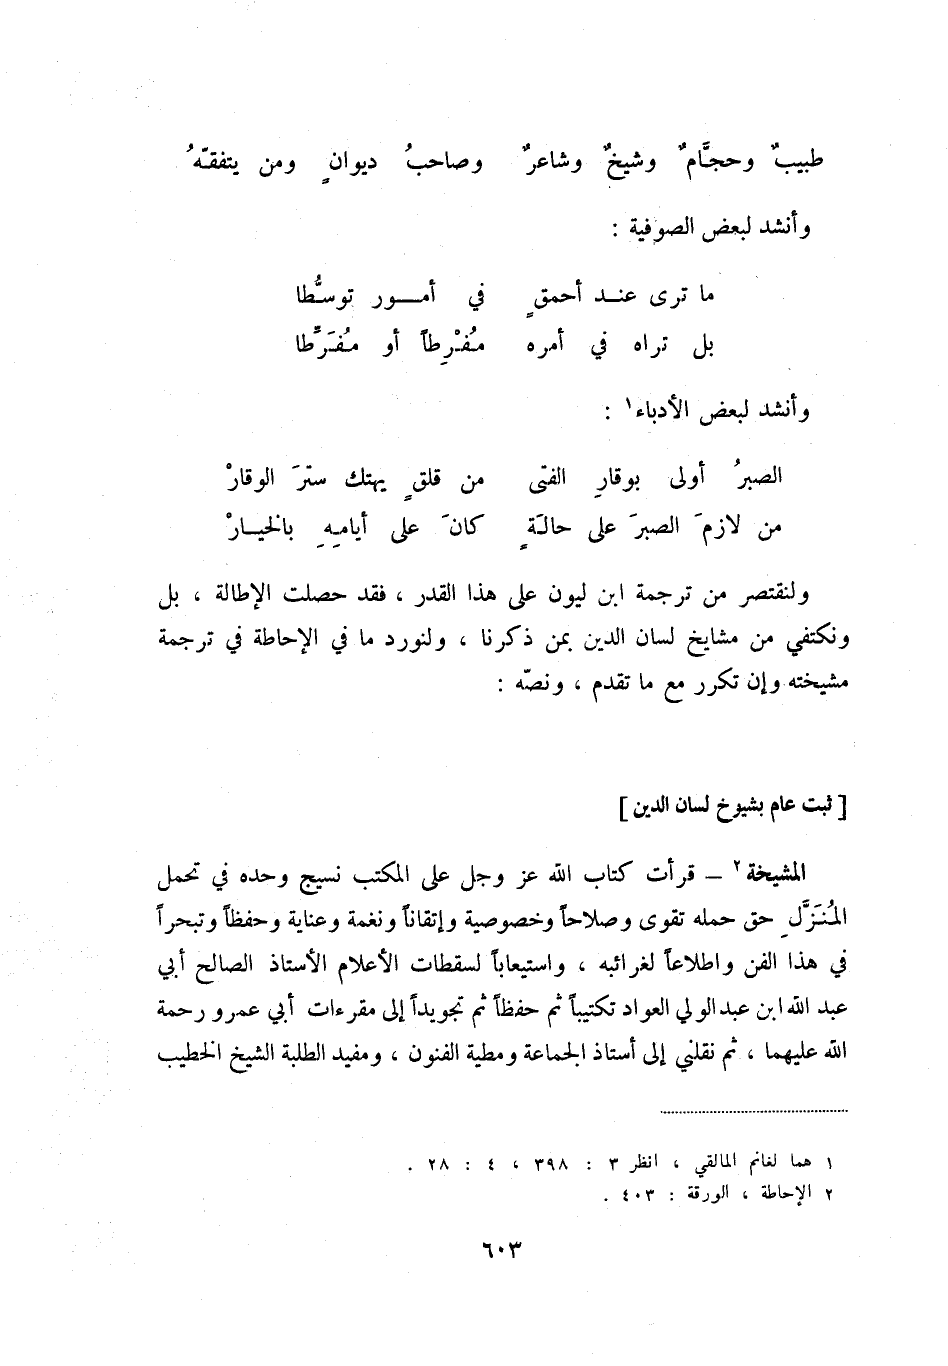 طبيبٌ وحجَّامٌ وشيخٌ وشاعرٌ وصاحبُ ديوانٍ ومن يتفقّهُ
وأنشد لبعض الصوفية :
ما ترى عند أحمقٍ في أمور توسُّطا
بل تراه في أمره مُفْرِطاً أو مُفَرِّطا
وأنشد لبعض الأدباء١ :
الصبرُ أولى بوقارِ الفتى من قلقٍ يهتك سترَ الوقارْ
من لازمَ الصبرَ على حالةٍ كانَ على أيامِهِ بالخيارْ
ولنقتصر من ترجمة ابن ليون على هذا القدر ، فقد حصلت الإطالة ، بل
ونكتفي من مشايخ لسان الدين بمن ذكرنا ، ولنورد ما في الإحاطة في ترجمة
مشيخته وإن تكرر مع ما تقدم ، ونصّه :
[ ثبت عام بشيوخ لسان الدين ]
المشيخة٢ – قرأت كتاب الله عز وجل على المكتب نسيج وحده في تحمل
المُنَزَّلِ حق حمله تقوى وصلاحاً وخصوصية وإتقاناً ونغمة وعناية وحفظاً وتبحراً
في هذا الفن واطلاعاً لغرائبه ، واستيعاباً لسقطات الأعلام الأستاذ الصالح أبي
عبد الله ابن عبد الولي العواد تكتيباً ثم حفظاً ثم تجويداً إلى مقرءات أبي عمرو رحمة
الله عليهما ، ثم نقلني إلى أستاذ الجماعة ومطية الفنون ، ومفيد الطلبة الشيخ الخطيب
١ هما لغانم المالقي ، انظر ٣ : ٣٩٨ ، ٤ : ٢٨ .
٢ الإحاطة ، الورقة : ٤٠٣ .
٦٠٣